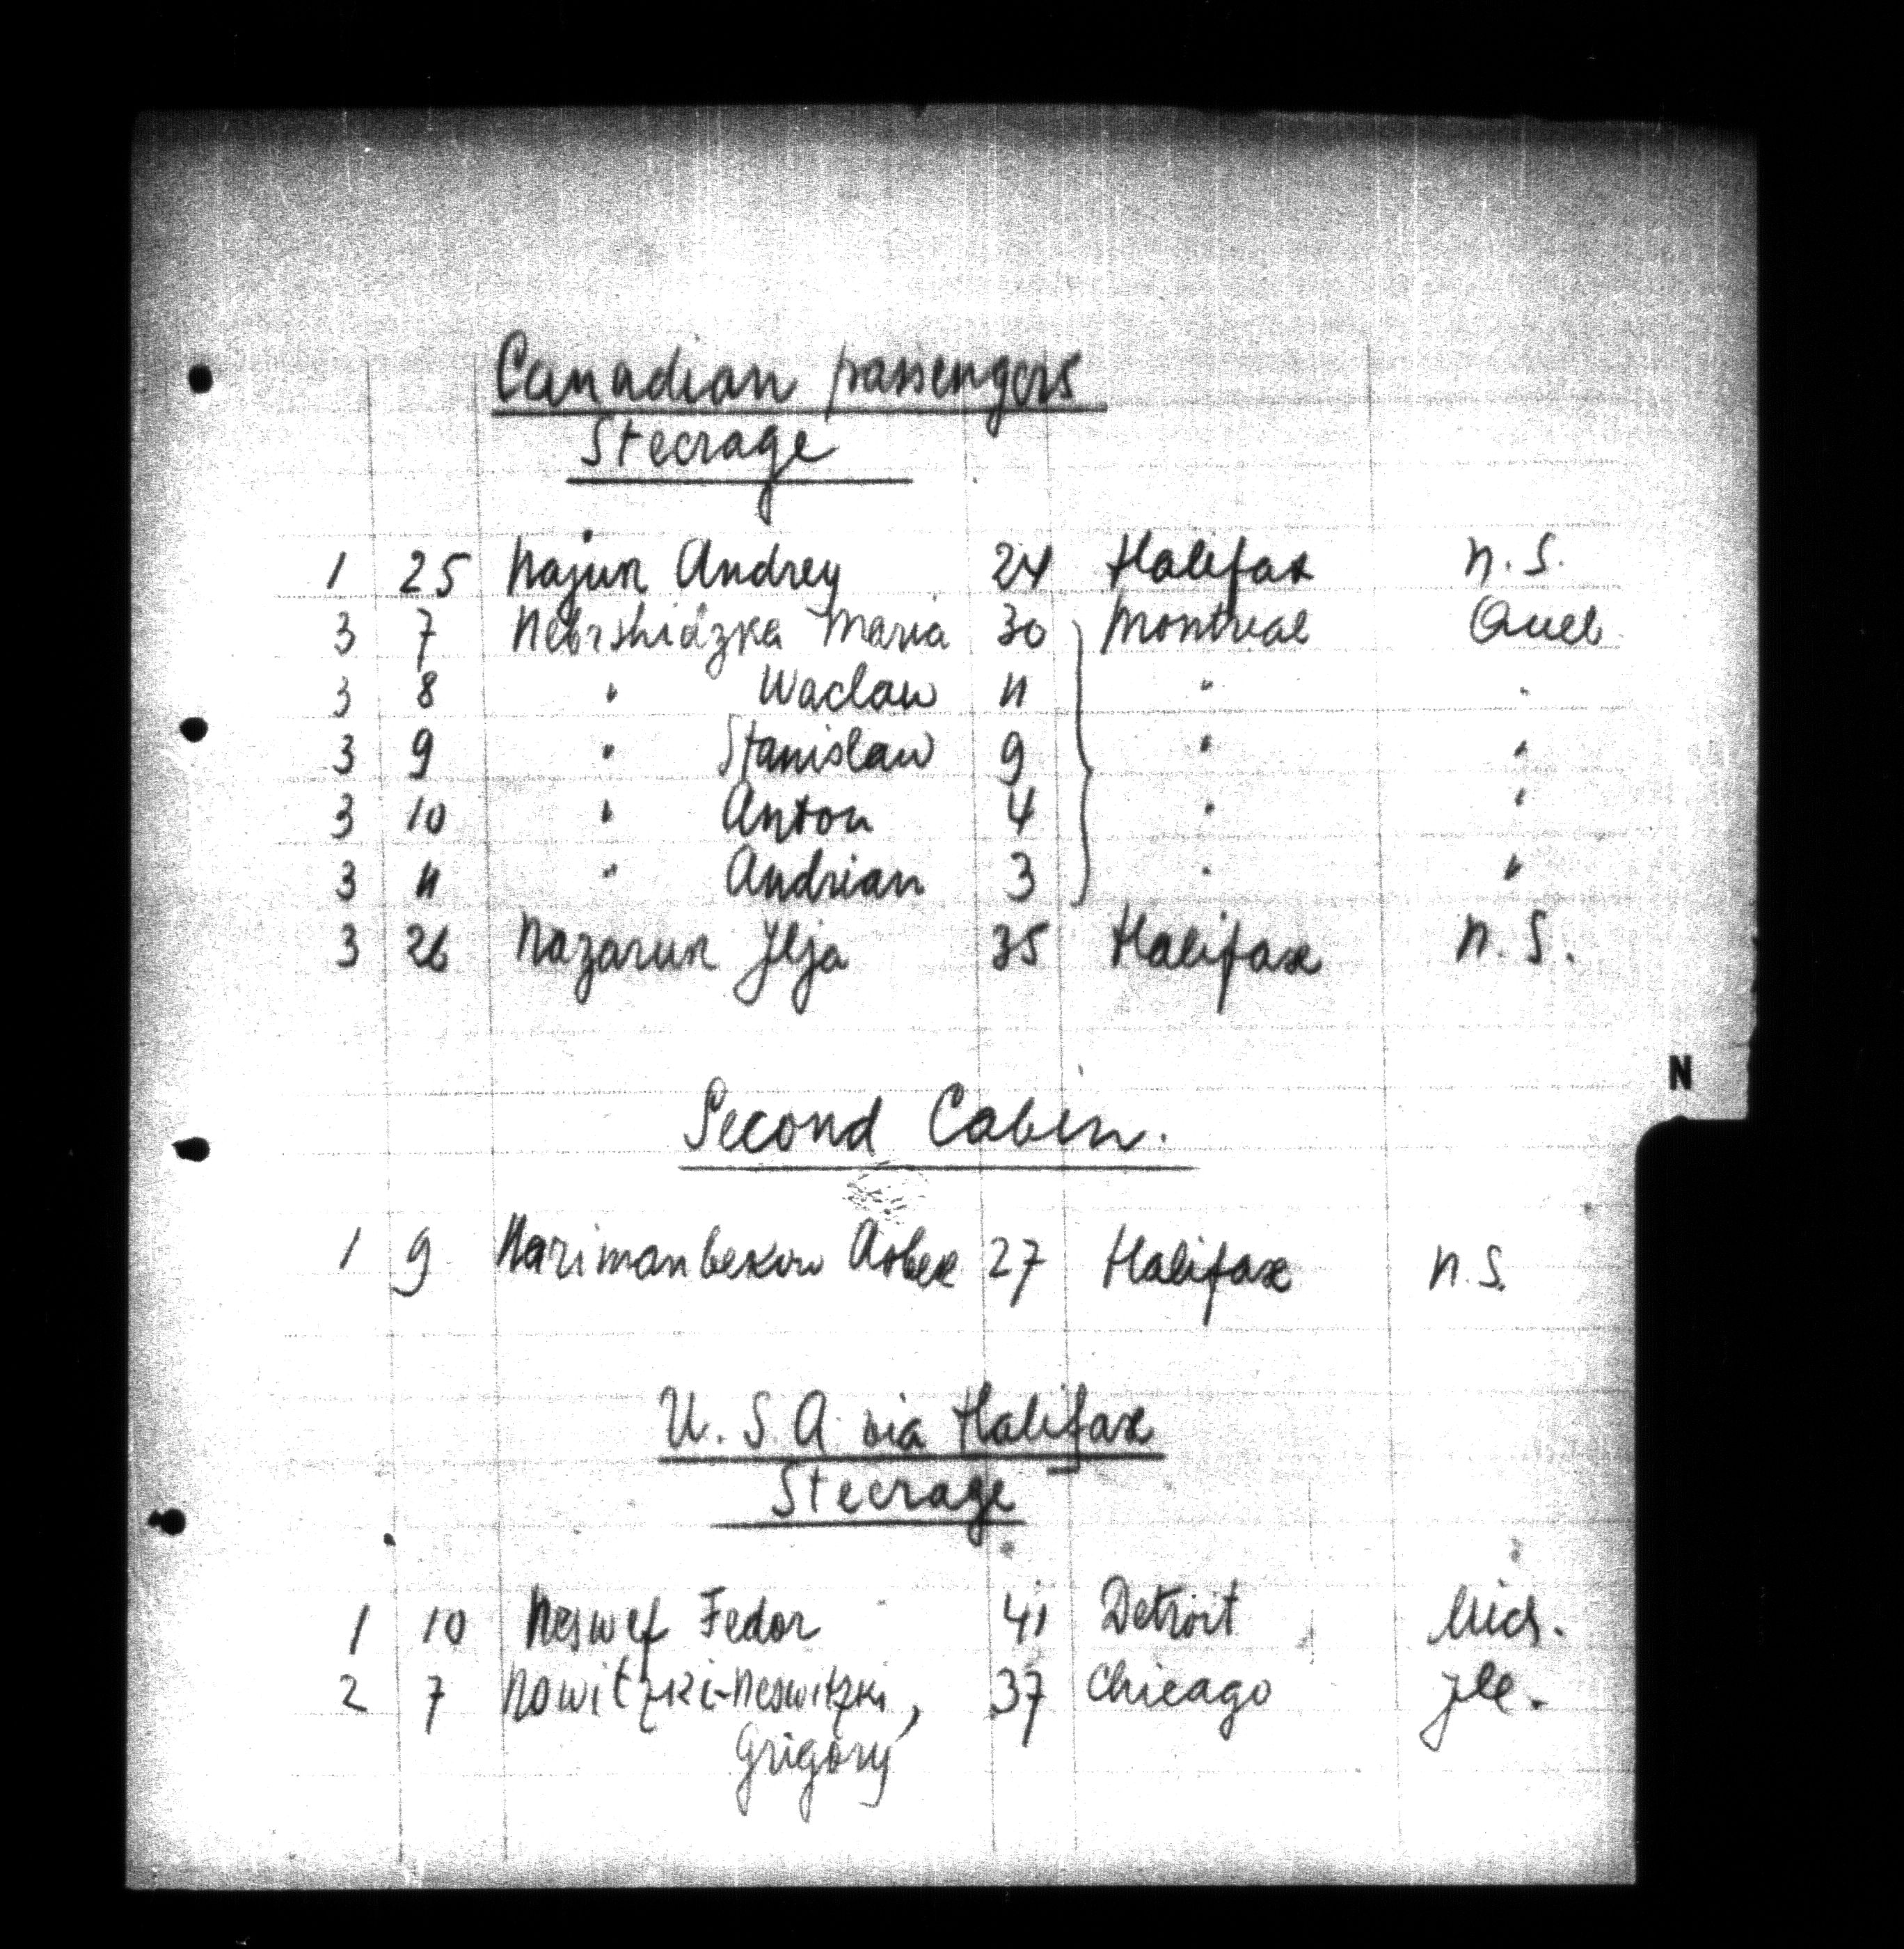 Canadian passengers
Steerage
1 25 Najun Andrey 24 Halifax N.S.
3 7 Nebrshidzka Maria 30 Montreal Queb
3 8 " Waclaw 11 " "
3 9 " Stanislaw 9 " "
3 10 " Anton 4 " "
3 11 " Andrian 3 " "
3 26 Nazaruk Jlja 35 Halifax N.S.
N
Second Cabin.
1 9 Narimanbekow Asbek 27 Halifax N.S.
U.S.A. via Halifax
Steerage
1 10 Neswef Fedor 41 Detroit Mich.
2 7 Nowitzki-Neswitzki, 37 Chicago Jll.
Grigory